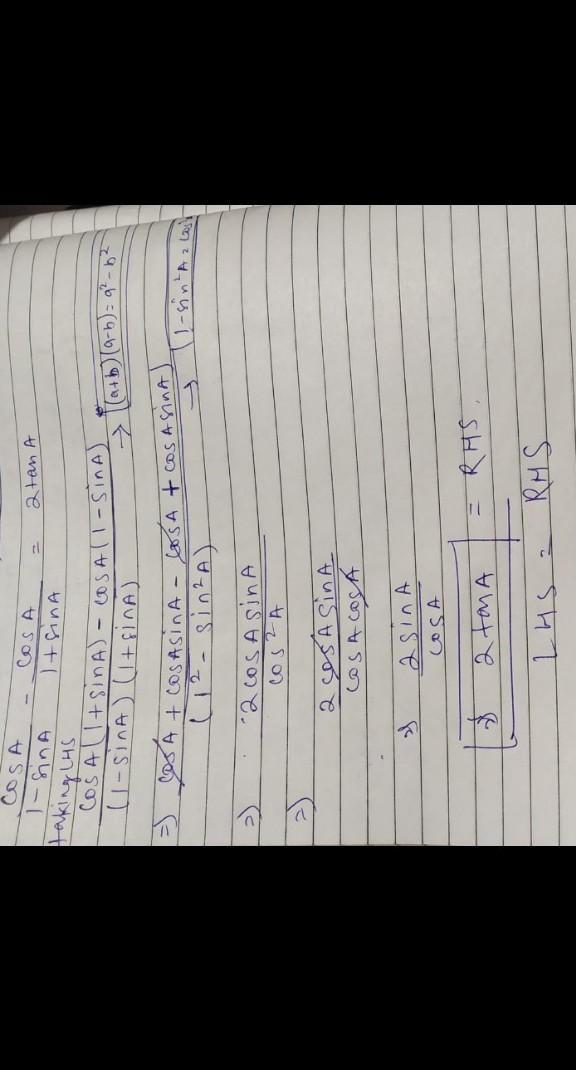 cosA/1-sinA - cosA/1+sinA = 2tanA
taking LHS
cosA(1+sinA) - cosA(1-sinA)/(1-sinA)(1+sinA) → (a+b)(a-b) = a²-b²
⇒ cosA + cosAsinA - cosA + cosAsinA/(1² - sin²A) → (1-sin²A = cos
⇒ 2cosAsinA/cos²A
⇒ 2cosAsinA/cosAcosA
⇒ 2sinA/cosA
⇒ 2tanA = RHS.
LHS = RHS